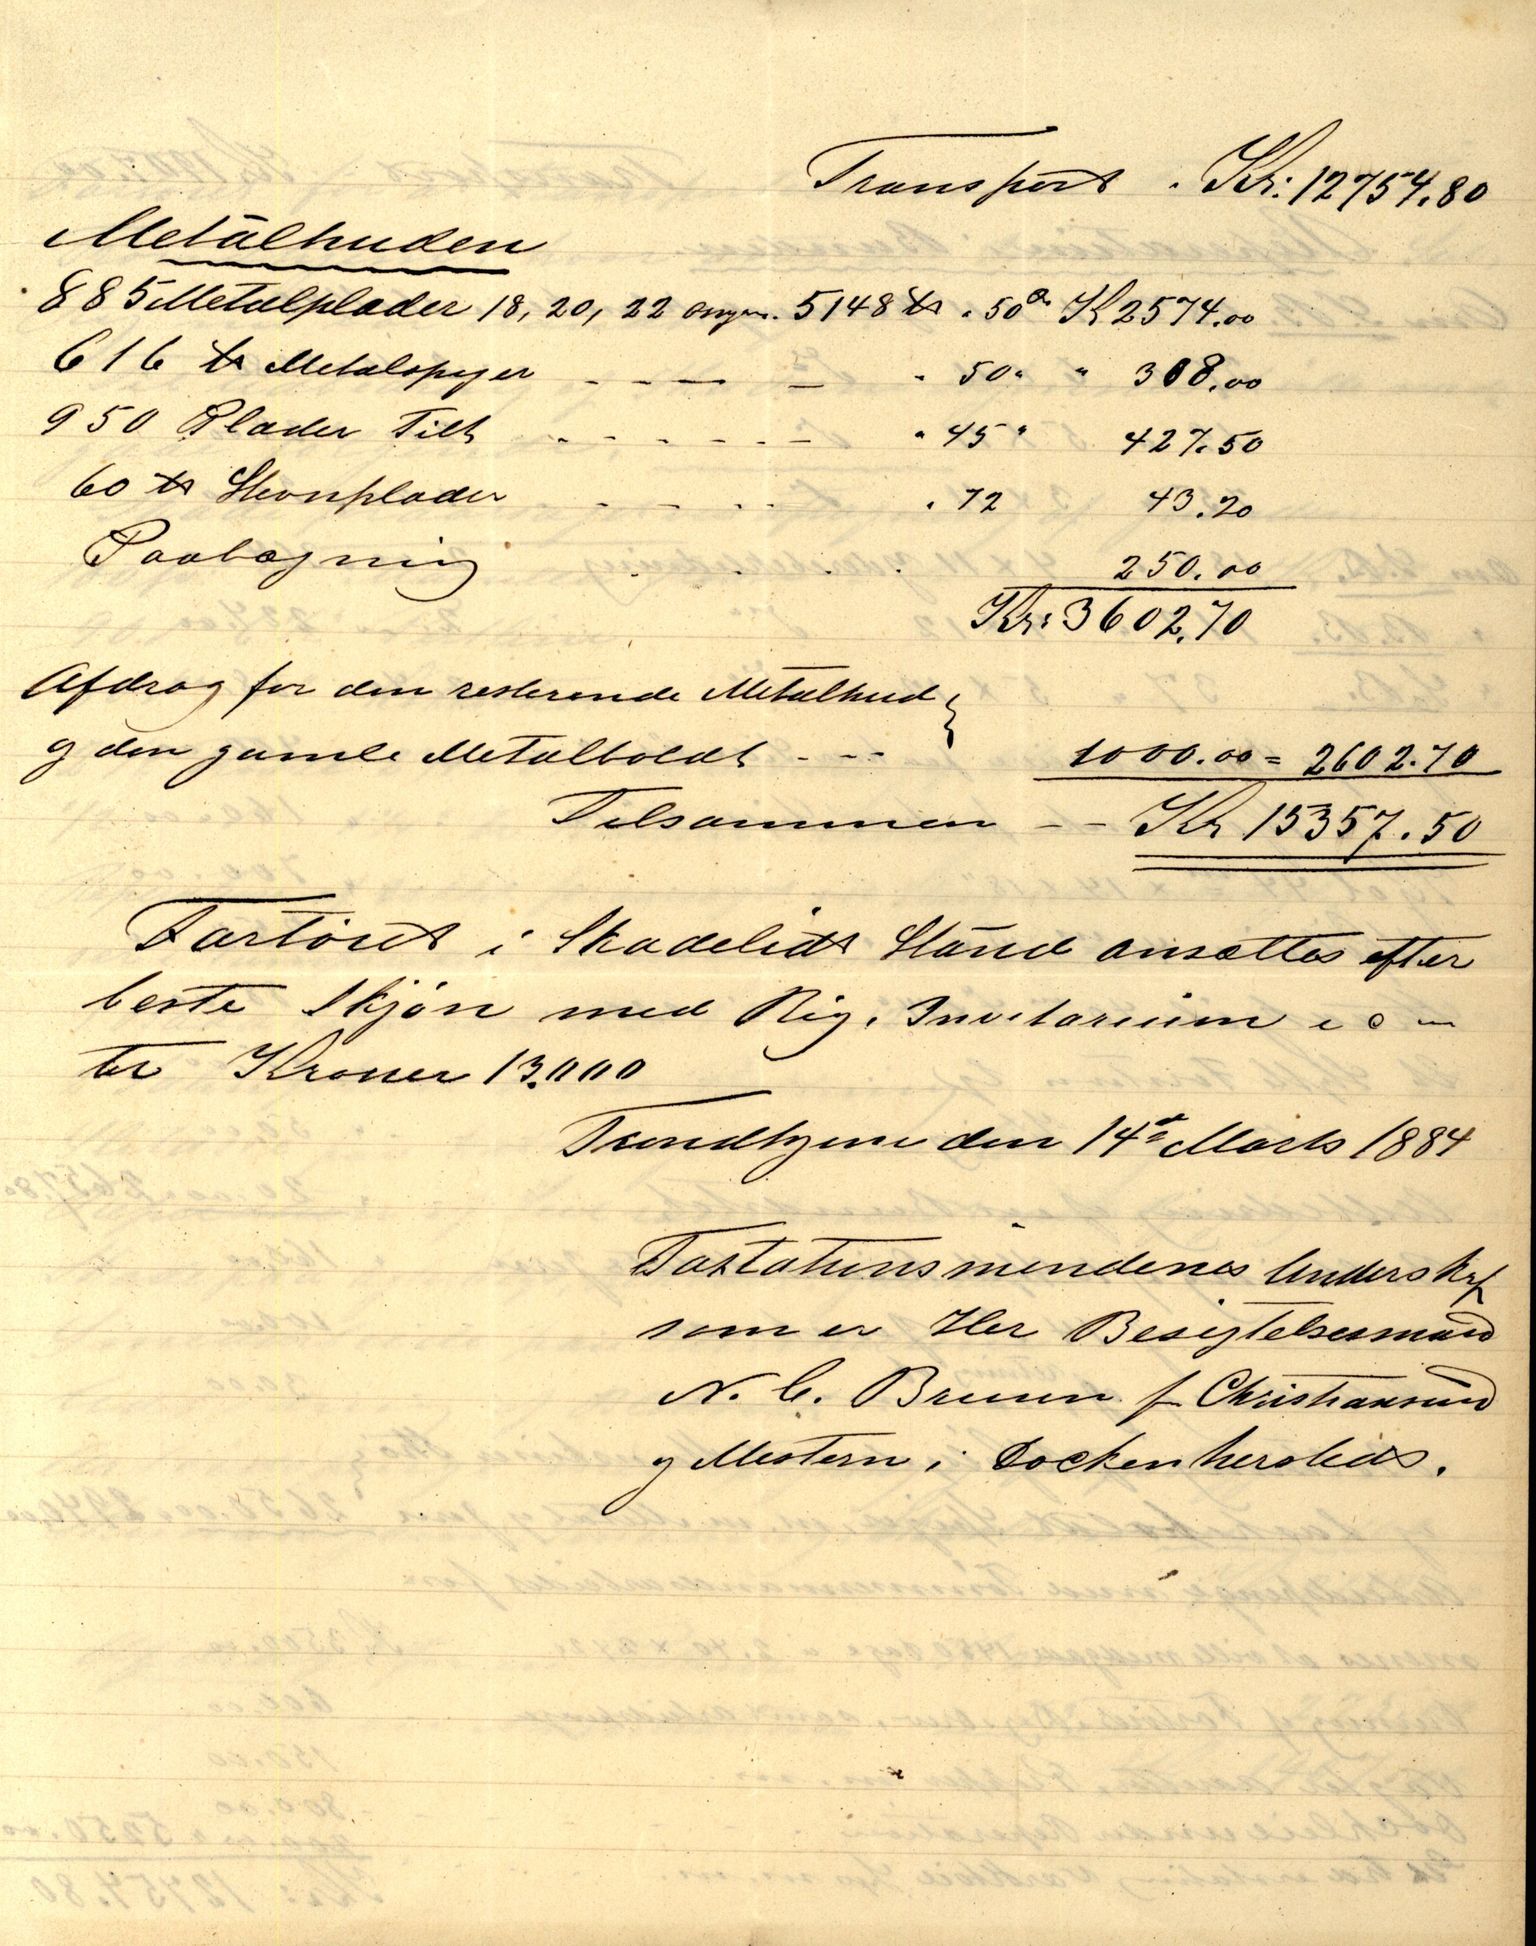 Transport . Kr: 12754.80
Metalhuden
885 Metalplader 18, 20, 22 5148 ℔ . 50 Ø Kr 2574.00
616 ℔ Metalspiger - - - - . 50 " " 308.00
950 Plader Filt - - - - - - " 45 " 427.50
60 ℔ Skovnplader . 72 43.20
Paalægning 250.00
Kr: 3602.70
Afdrag for den resterende Metalhud }
og den gamle Metalboldt - - - 1000.00 = 2602.70
Tilsammen - - Kr 15357.50
Fartöiet i Skadelidt Stand ansættes efter
beste Skjön med Rig, Inventarium
Kroner 13.000
Trondhjem den 14de Marts 1884
Taxtationsmendenes Underskrf
som er Her Besigtelsesmand
N. C. Bruun f Christiansund
og Mestern i Docken hersteds.